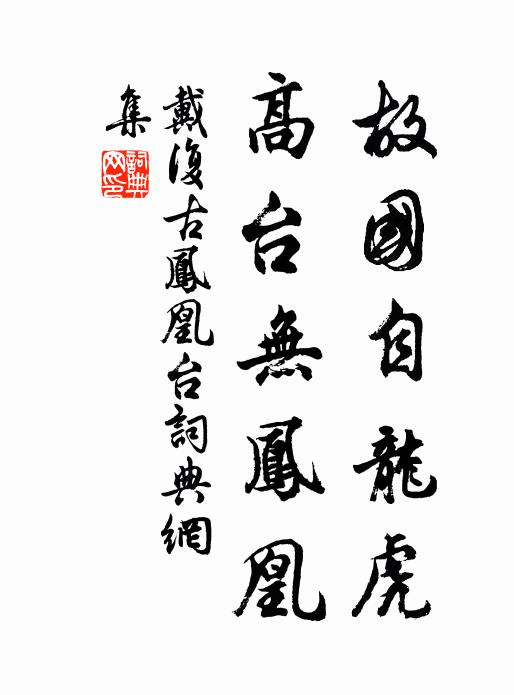 故國自龍虎
高台無鳳凰
戴復古鳳凰台詞典網
集
詞典
网印